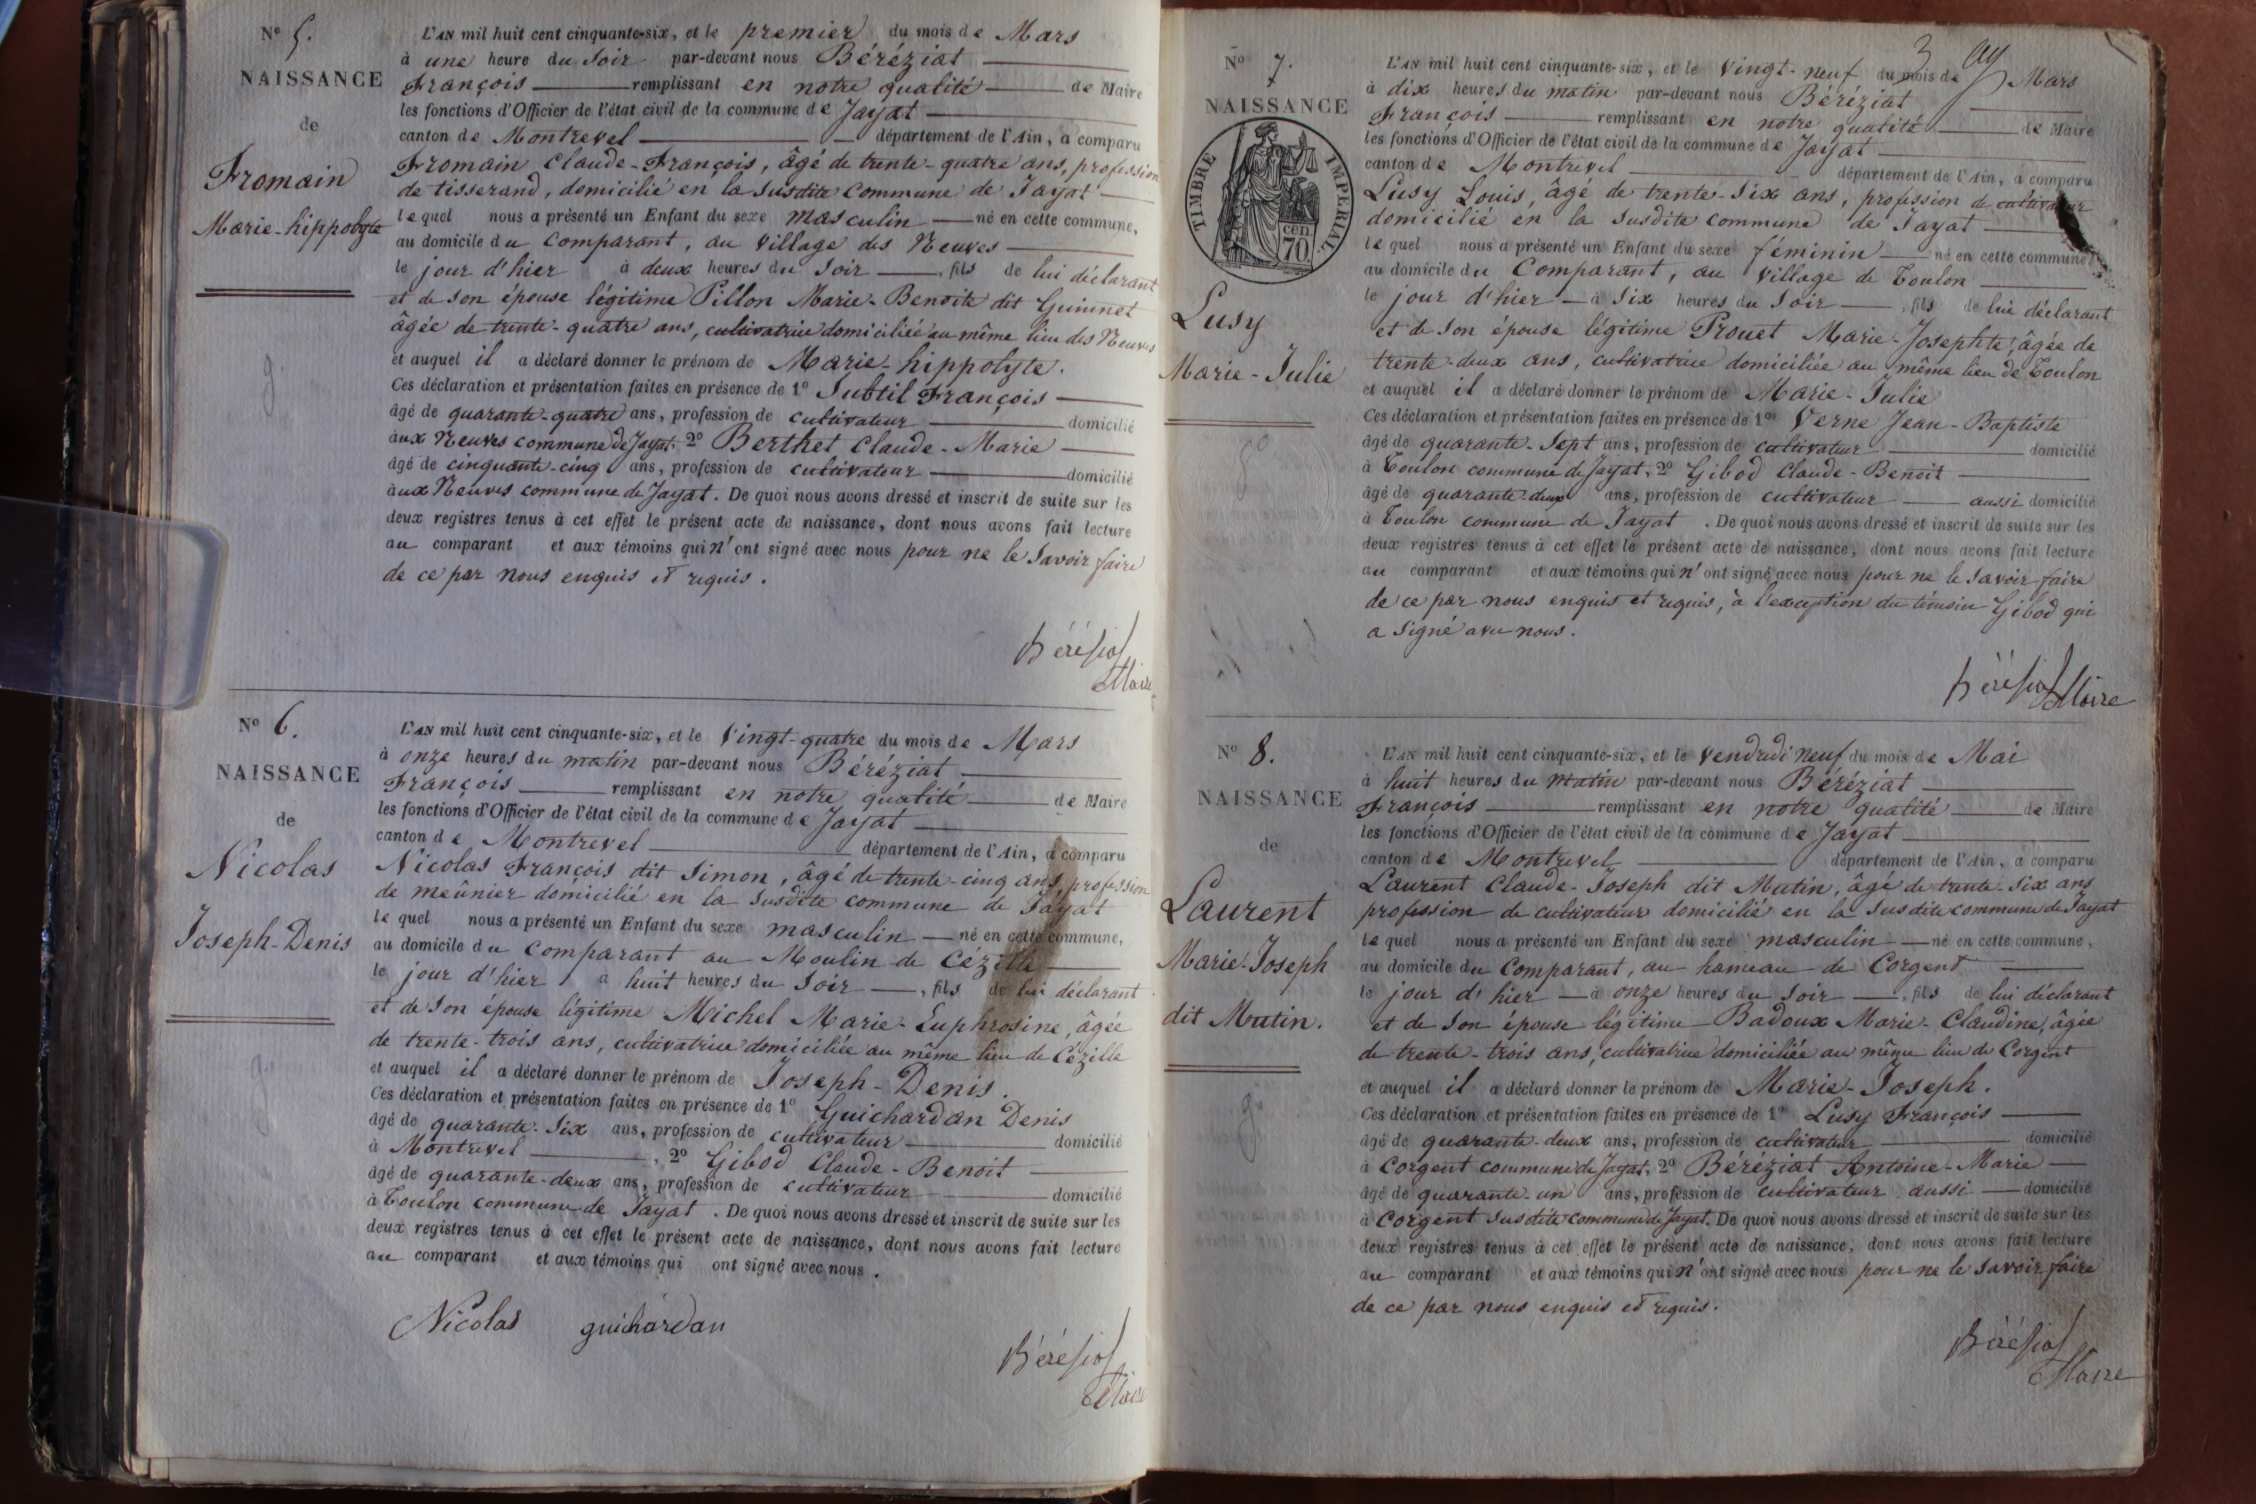 Nº 5.
NAISSANCE
de
Fromain
Marie-hippolyte
L'AN mil huit cent cinquante-six, et le premier du mois de Mars
à une heure du soir par-devant nous Béréziat
François remplissant en notre qualité de Maire
les fonctions d'Officier de l'état civil de la commune de Jayat
canton de Montrevel département de l'Ain, a comparu
Fromain Claude-François, âgé de trente-quatre ans, profession
de tisserand, domicilié en la susdite commune de Jayat
lequel nous a présenté un Enfant du sexe masculin né en cette commune,
au domicile du comparant, au village des Neuves
le jour d'hier à deux heures du soir, fils de lui déclarant
et de son épouse légitime Pillon Marie-Benoite dit Guinnet
âgée de trente-quatre ans, cultivatrice domiciliée au même lieu des Neuves
et auquel il a déclaré donner le prénom de Marie-hippolyte.
Ces déclaration et présentation faites en présence de 1º Subtil François
âgé de quarante-quatre ans, profession de cultivateur domicilié
aux Neuves commune de Jayat, 2º Berthet Claude-Marie
âgé de cinquante-cinq ans, profession de cultivateur domicilié
aux Neuves commune de Jayat. De quoi nous avons dressé et inscrit de suite sur les
deux registres tenus à cet effet le présent acte de naissance, dont nous avons fait lecture
au comparant et aux témoins qui n'ont signé avec nous pour ne le savoir faire
de ce par nous enquis et requis.
Béréziat
Maire
Nº 6.
NAISSANCE
de
Nicolas
Joseph-Denis
L'AN mil huit cent cinquante-six, et le vingt-quatre du mois de Mars
à onze heures du matin par-devant nous Béréziat
François remplissant en notre qualité de Maire
les fonctions d'Officier de l'état civil de la commune de Jayat
canton de Montrevel département de l'Ain, a comparu
Nicolas François dit Simon, âgé de trente-cinq ans, profession
de meûnier domicilié en la susdite commune de Jayat
lequel nous a présenté un Enfant du sexe masculin né en cette commune,
au domicile du comparant au Moulin de Cézille
le jour d'hier à huit heures du soir, fils de lui déclarant
et de son épouse légitime Michel Marie-Euphrosine, âgée
de trente-trois ans, cultivatrice domiciliée au même lieu de Cézille
et auquel il a déclaré donner le prénom de Joseph-Denis.
Ces déclaration et présentation faites en présence de 1º Guichardan Denis
âgé de quarante-six ans, profession de cultivateur domicilié
à Montrevel, 2º Gibod Claude-Benoit
âgé de quarante-deux ans, profession de cultivateur domicilié
à Toulon commune de Jayat. De quoi nous avons dressé et inscrit de suite sur les
deux registres tenus à cet effet le présent acte de naissance, dont nous avons fait lecture
au comparant et aux témoins qui ont signé avec nous.
Nicolas guichardan
Béréziat
Maire
3
Nº 7.
NAISSANCE
TIMBRE IMPERIAL
cen.
70
Lusy
Marie-Julie
L'AN mil huit cent cinquante-six, et le vingt-neuf du mois de Mars
à dix heures du matin par-devant nous Béréziat
François remplissant en notre qualité de Maire
les fonctions d'Officier de l'état civil de la commune de Jayat
canton de Montrevel département de l'Ain, a comparu
Lusy Louis, âgé de trente-six ans, profession de cultivateur
domicilié en la susdite commune de Jayat
lequel nous a présenté un Enfant du sexe féminin né en cette commune,
au domicile du comparant, au village de Toulon
le jour d'hier à six heures du soir, fils de lui déclarant
et de son épouse légitime Prouet Marie-Josephte, âgée de
trente-deux ans, cultivatrice domiciliée au même lieu de Toulon
et auquel il a déclaré donner le prénom de Marie-Julie
Ces déclaration et présentation faites en présence de 1º Verne Jean-Baptiste
âgé de quarante-sept ans, profession de cultivateur domicilié
à Toulon commune de Jayat, 2º Gibod Claude-Benoit
âgé de quarante-deux ans, profession de cultivateur aussi domicilié
à Toulon commune de Jayat. De quoi nous avons dressé et inscrit de suite sur les
deux registres tenus à cet effet le présent acte de naissance, dont nous avons fait lecture
au comparant et aux témoins qui n'ont signé avec nous pour ne le savoir faire
de ce par nous enquis et requis, à l'exception du témoin Gibod qui
a signé avec nous.
Béréziat Maire
Nº 8.
NAISSANCE
de
Laurent
Marie-Joseph
dit Mutin.
L'AN mil huit cent cinquante-six, et le vendredi neuf du mois de Mai
à huit heures du matin par-devant nous Béréziat
François remplissant en notre qualité de Maire
les fonctions d'Officier de l'état civil de la commune de Jayat
canton de Montrevel département de l'Ain, a comparu
Laurent Claude-Joseph dit Mutin, âgé de trente-six ans
profession de cultivateur domicilié en la susdite commune de Jayat
lequel nous a présenté un Enfant du sexe masculin né en cette commune,
au domicile du comparant, au hameau de Corgent
le jour d'hier à onze heures du soir, fils de lui déclarant
et de son épouse légitime Badoux Marie-Claudine, âgée
de trente-trois ans, cultivatrice domiciliée au même lieu de Corgent
et auquel il a déclaré donner le prénom de Marie-Joseph.
Ces déclaration et présentation faites en présence de 1º Lusy François
âgé de quarante-deux ans, profession de cultivateur domicilié
à Corgent commune de Jayat, 2º Béréziat Antoine-Marie
âgé de quarante-un ans, profession de cultivateur aussi domicilié
à Corgent susdite commune de Jayat. De quoi nous avons dressé et inscrit de suite sur les
deux registres tenus à cet effet le présent acte de naissance, dont nous avons fait lecture
au comparant et aux témoins qui n'ont signé avec nous pour ne le savoir faire
de ce par nous enquis et requis.
Béréziat
Maire